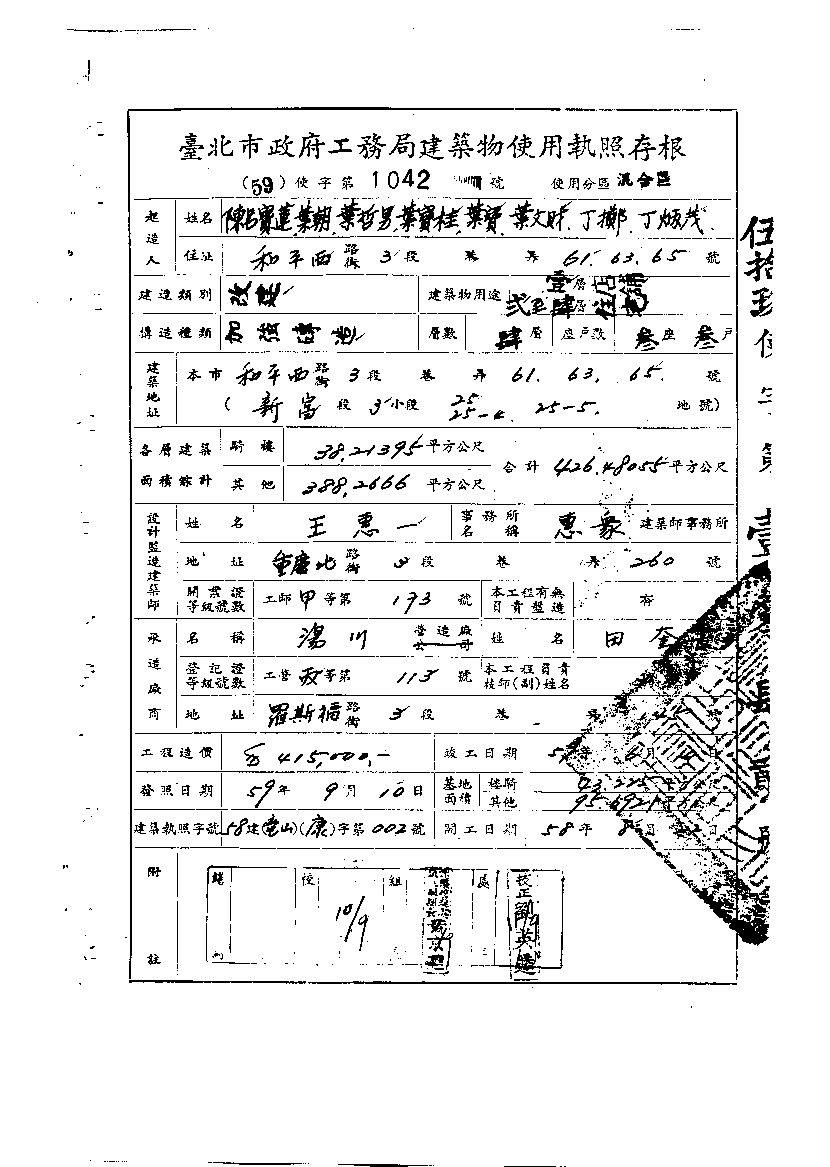 臺北市政府工務局建築物使用執照存根
(59)使字第 1042 號 使用分區 混合區
起造人 姓名 陳呂寶蓮 葉朝 葉哲男 葉寶桂 葉寶 葉文財 丁擲 丁炳茂
住址 和平西路街 3段 巷 弄 61. 63. 65 號
建造類別 改建 建築物用途 壹層店舖 貳至肆層住宅
構造種類 加強磚造 層數 肆層 座戶數 叁座 叁戶
建築地址 本市 和平西路街 3段 巷 弄 61. 63. 65. 號
(新富段 3小段 25 25-4 25-5. 地號)
各層建築面積總計 騎樓 38.21395平方公尺 合計 426.48055平方公尺
其他 388.2666 平方公尺
設計監造建築師 姓名 王惠一 事務所名稱 惠眾 建築師事務所
地址 重慶北路街 3段 巷 弄 260 號
開業證等級號數 工師甲等第 173 號 本工程有無負責監造 有
承造廠商 名稱 湯川 營造廠公司 姓名 田
登記證等級號數 工營 等第 113 號 本工程負責技師(副)姓名
地址 羅斯福路街 3段 巷
工程造價 415,000.- 竣工日期 59年 月 日
發照日期 59年 9月 10日 基地面積 騎樓 平方公尺
其他
建築執照字號 58建( 山)(康)字第002號 開工日期 58年 8月 日
附註 組 校正
10/9
伍拾玖使字第壹